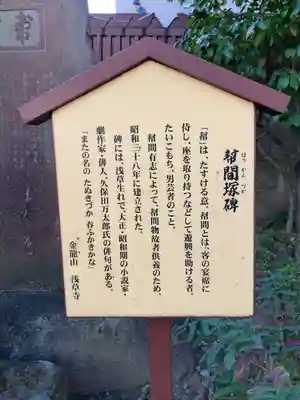 幇間塚碑
ほうかんづか
「幇」は、たすける意、幇間とは、客の宴席に
侍し、座を取り持つなどして遊興を助ける者。
たいこもち、男芸者のこと。
幇間有志によって、幇間物故者供養のため、
昭和三十八年に建立された。
碑には、浅草生れで、大正・昭和期の小説家
劇作家・俳人、久保田万太郎氏の俳句がある。
「またの名の たぬきづか 春ふかきかな」
金龍山 浅草寺